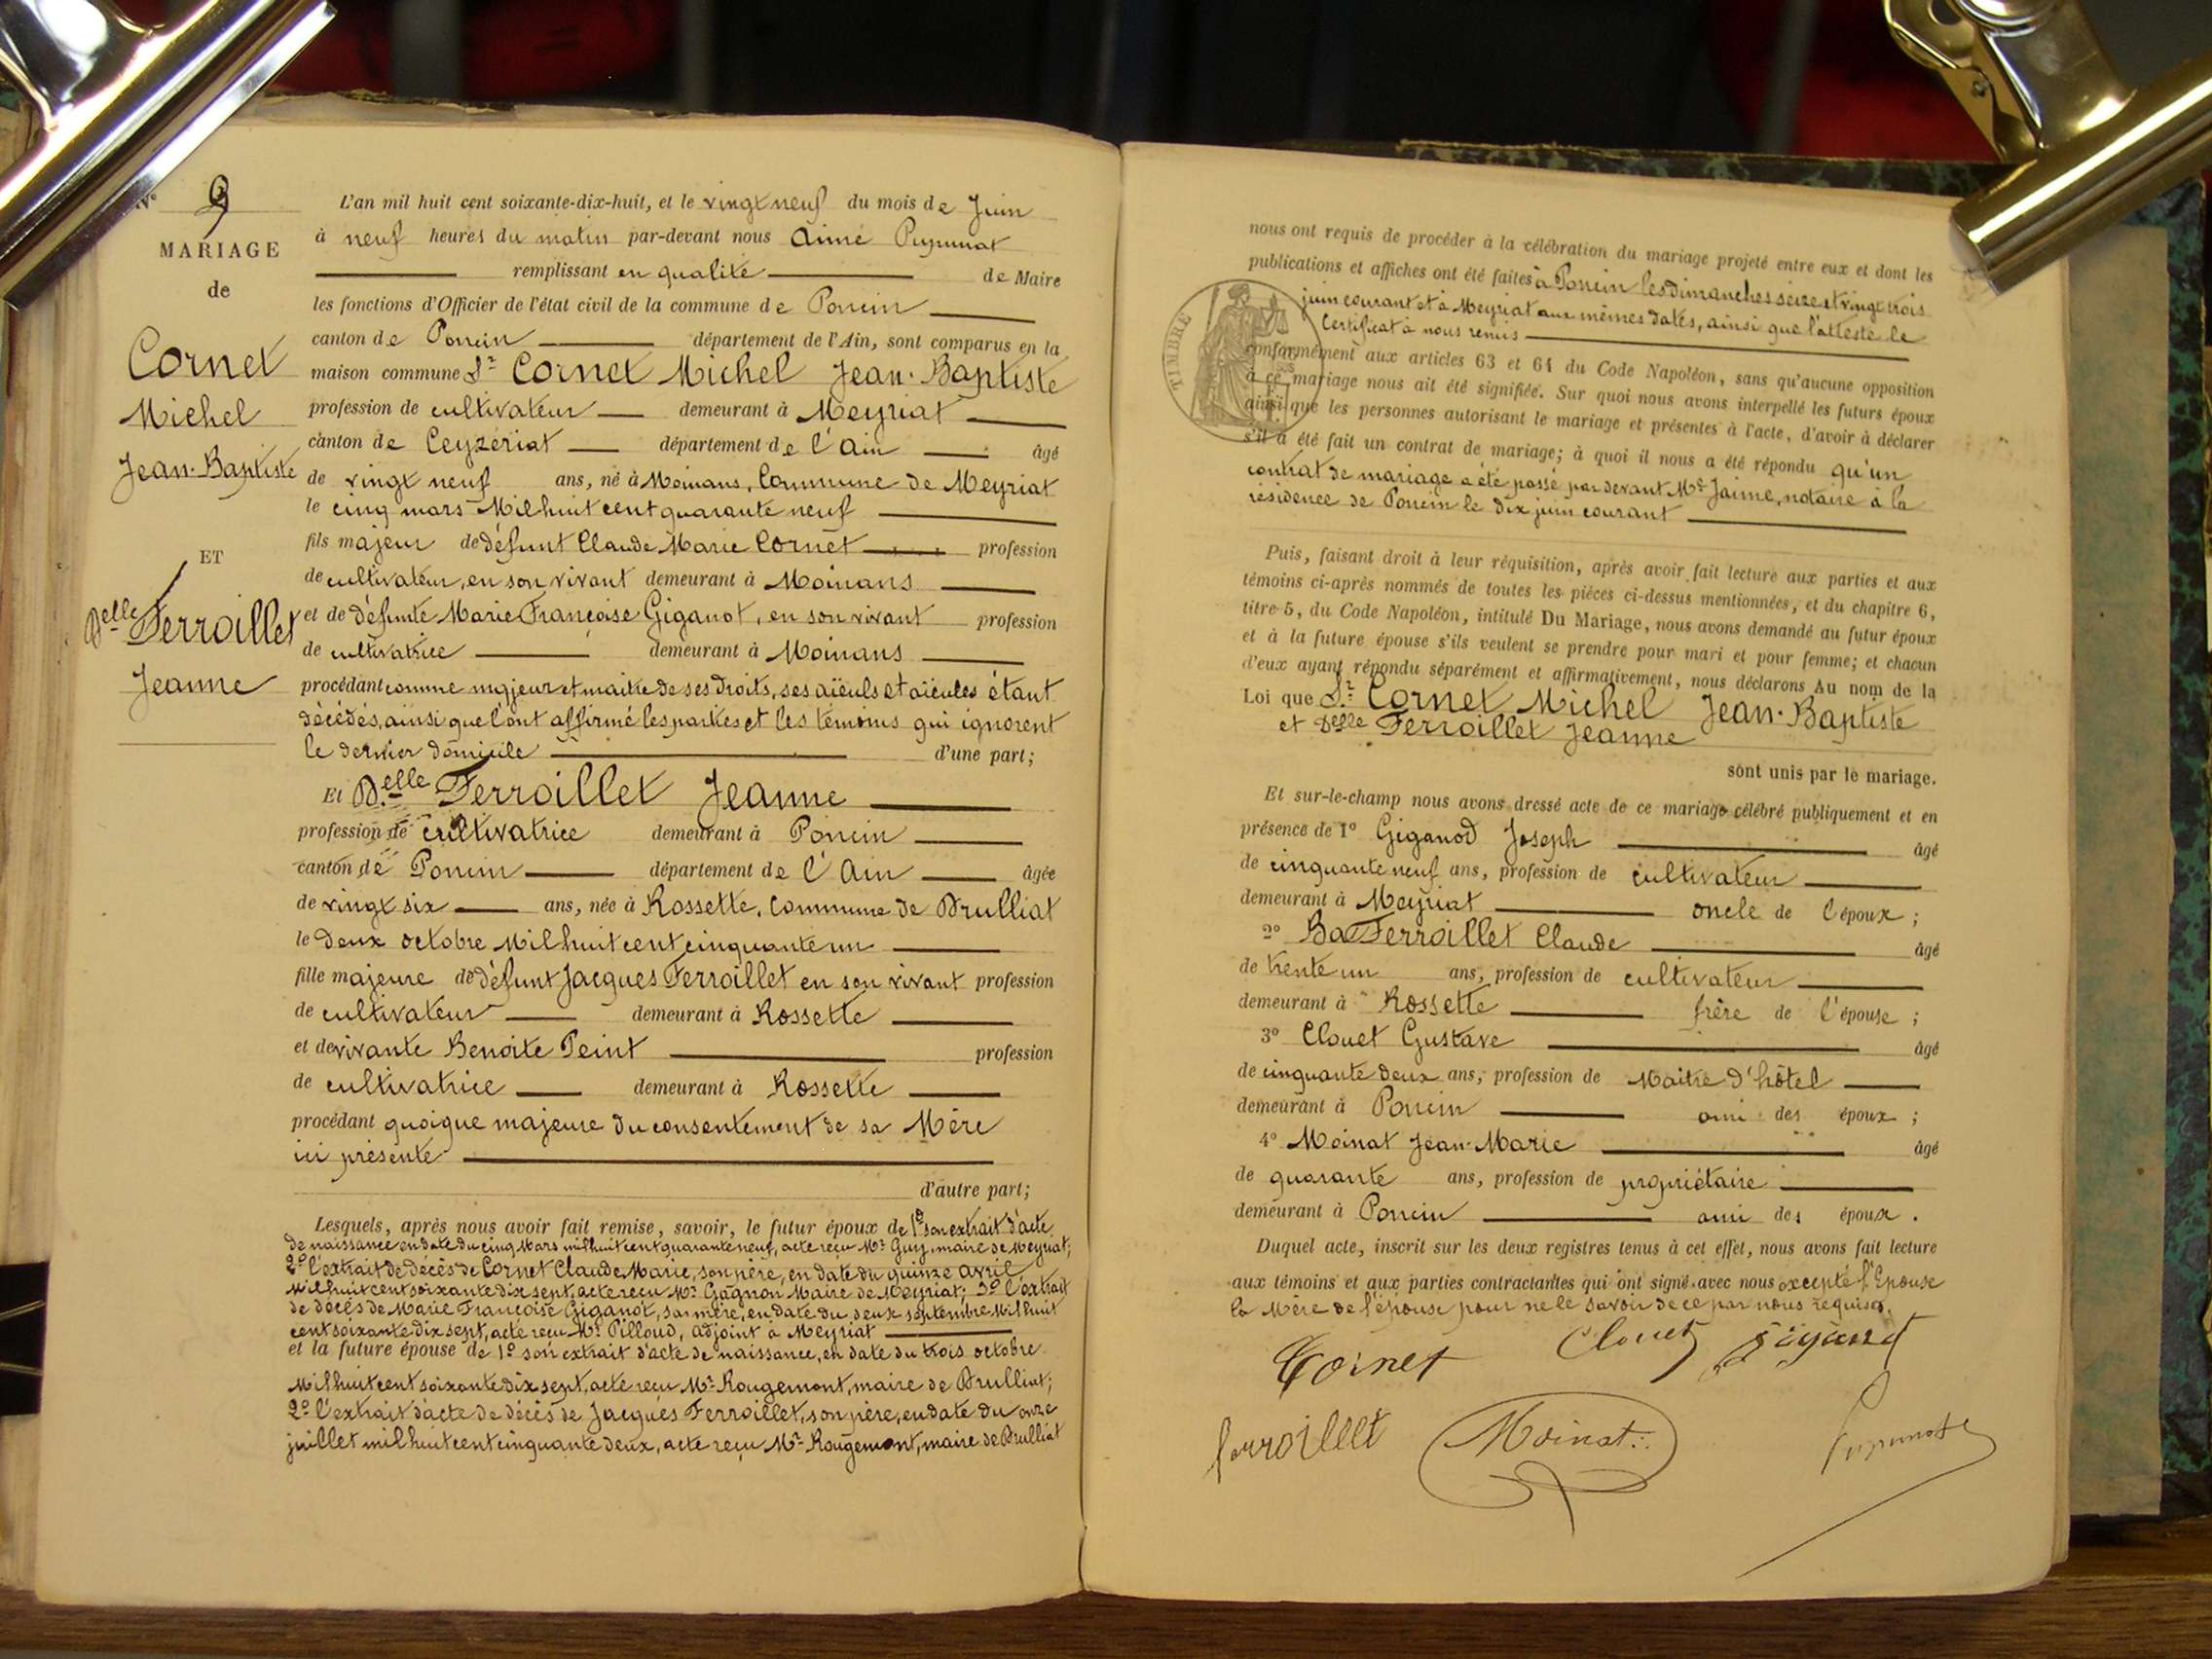 N° 9
MARIAGE
de
Cornet
Michel
Jean-Baptiste
ET
Delle Ferroillet
Jeanne
L'an mil huit cent soixante-dix-huit, et le vingt neuf du mois de Juin
à neuf heures du matin par-devant nous Aimé Pupunat
remplissant en qualité de Maire
les fonctions d'Officier de l'état civil de la commune de Poncin
canton de Poncin département de l'Ain, sont comparus en la
maison commune Sr Cornet Michel Jean-Baptiste
profession de cultivateur demeurant à Meyriat
canton de Ceyzériat département de l'Ain âgé
de vingt neuf ans, né à Moinans, Commune de Meyriat
le cinq mars Mil huit cent quarante neuf
fils majeur de défunt Claude Marie Cornet profession
de cultivateur, en son vivant demeurant à Moinans
et de défunte Marie Françoise Giganot, en son vivant profession
de cultivatrice demeurant à Moinans
procédant comme majeur et maître de ses droits, ses aïeuls et aïeules étant
décédés, ainsi que l'ont affirmé les parties et les témoins qui ignorent
le dernier domicile d'une part;
Et Delle Ferroillet Jeanne
profession de cultivatrice demeurant à Poncin
canton de Poncin département de l'Ain âgée
de vingt six ans, née à Rossette, Commune de Druilliat
le deux octobre Mil huit cent cinquante un
fille majeure de défunt Jacques Ferroillet en son vivant profession
de cultivateur demeurant à Rossette
et de vivante Benoite Peint profession
de cultivatrice demeurant à Rossette
procédant quoique majeure du consentement de sa Mère
ici présente
d'autre part;
Lesquels, après nous avoir fait remise, savoir, le futur époux de 1° son extrait d'acte
de naissance en date du cinq Mars mil huit cent quarante neuf, acte reçu Mr Guy, maire de Meyriat;
2° l'extrait de décès de Cornet Claude Marie, son père, en date du quinze avril
Mil huit cent soixante dix sept, acte reçu Mr Gagnon Maire de Meyriat; 3° l'extrait
de décès de Marie Françoise Giganot, sa mère, en date du deux septembre Mil huit
cent soixante dix sept, acte reçu Mr Pilloud, adjoint à Meyriat
et la future épouse de 1° son extrait d'acte de naissance, en date du trois octobre
Mil huit cent soixante dix sept, acte reçu Mr Rougemont, maire de Drulliat;
2° l'extrait d'acte de décès de Jacques Ferroillet, son père, en date du onze
juillet mil huit cent cinquante deux, acte reçu Mr Rougemont, maire de Drulliat
nous ont requis de procéder à la célébration du mariage projeté entre eux et dont les
publications et affiches ont été faites à Poncin les dimanches seize et vingt trois
juin courant et à Meyriat aux mêmes dates, ainsi que l'atteste le
Certificat à nous remis
TIMBRE
conformément aux articles 63 et 64 du Code Napoléon, sans qu'aucune opposition
à ce mariage nous ait été signifiée. Sur quoi nous avons interpellé les futurs époux
ainsi que les personnes autorisant le mariage et présentes à l'acte, d'avoir à déclarer
s'il a été fait un contrat de mariage; à quoi il nous a été répondu qu'un
contrat de mariage a été passé par devant Me Jaime, notaire à la
résidence de Poncin le dix juin courant
Puis, faisant droit à leur réquisition, après avoir fait lecture aux parties et aux
témoins ci-après nommés de toutes les pièces ci-dessus mentionnées, et du chapitre 6,
titre 5, du Code Napoléon, intitulé Du Mariage, nous avons demandé au futur époux
et à la future épouse s'ils veulent se prendre pour mari et pour femme; et chacun
d'eux ayant répondu séparément et affirmativement, nous déclarons Au nom de la
Loi que Sr Cornet Michel Jean-Baptiste
et Delle Ferroillet Jeanne
sont unis par le mariage.
Et sur-le-champ nous avons dressé acte de ce mariage célébré publiquement et en
présence de 1° Giganod Joseph âgé
de cinquante neuf ans, profession de cultivateur
demeurant à Meyriat oncle de l'époux;
2° Ferroillet Claude âgé
de trente un ans, profession de cultivateur
demeurant à Rossette frère de l'épouse;
3° Clouet Gustave âgé
de cinquante deux ans, profession de Maître d'hôtel
demeurant à Poncin ami des époux;
4° Moinat Jean-Marie âgé
de quarante ans, profession de propriétaire
demeurant à Poncin ami des époux.
Duquel acte, inscrit sur les deux registres tenus à cet effet, nous avons fait lecture
aux témoins et aux parties contractantes qui ont signé avec nous excepté l'Epouse
la Mère de l'épouse pour ne le savoir de ce par nous requises.
Cornet Clouet
ferroillet Moinat